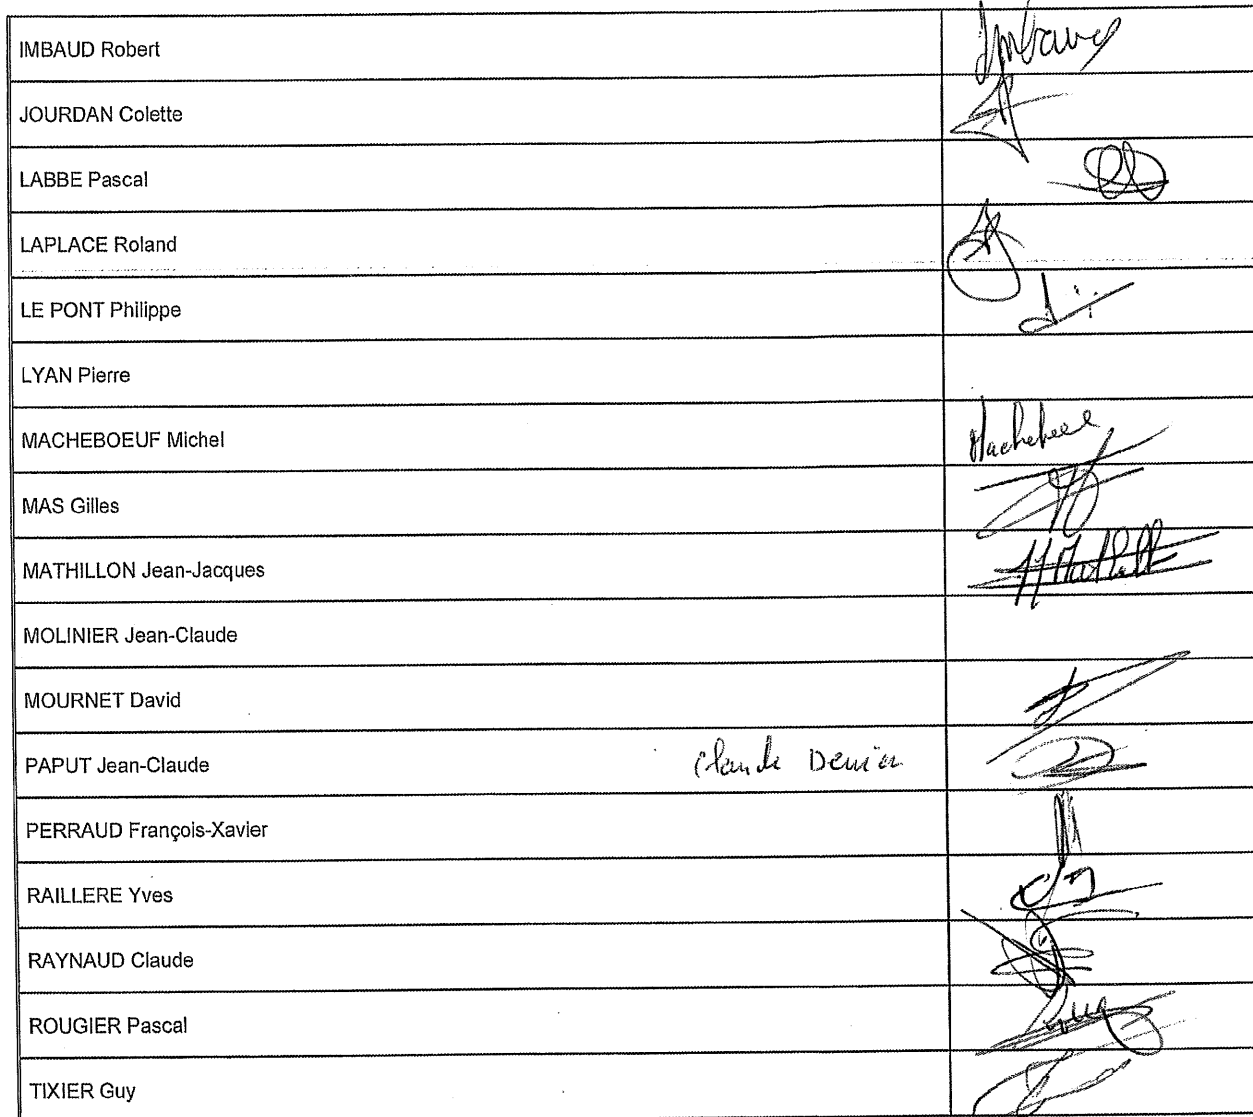 IMBAUD Robert
JOURDAN Colette
LABBE Pascal
LAPLACE Roland
LE PONT Philippe
LYAN Pierre
MACHEBOEUF Michel
MAS Gilles
MATHILLON Jean-Jacques
MOLINIER Jean-Claude
MOURNET David
PAPUT Jean-Claude Claude
PERRAUD François-Xavier
RAILLERE Yves
RAYNAUD Claude
ROUGIER Pascal
TIXIER Guy